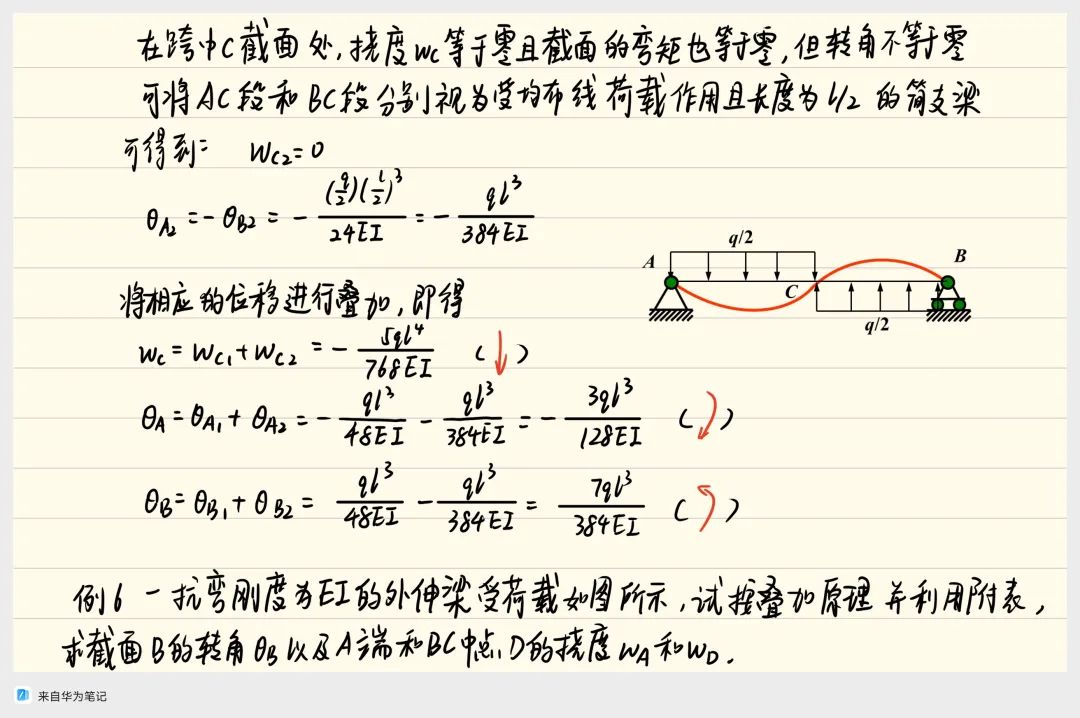 在跨中C截面处,挠度wc等于零且截面的弯矩也等于零,但转角不等于零
可将AC段和BC段分别视为受均布线荷载作用且长度为l/2的简支梁
可得到: wC2=0
θA2=-θB2=-(q/2)(l/2)³/24EI=-ql³/384EI
q/2
A
B
C
q/2
将相应的位移进行叠加,即得
wc=wC1+wC2=-5ql⁴/768EI (↓)
θA=θA1+θA2=-ql³/48EI-ql³/384EI=-3ql³/128EI (⤵)
θB=θB1+θB2=ql³/48EI-ql³/384EI=7ql³/384EI (↰)
例6 一抗弯刚度为EI的外伸梁受荷载如图所示,试按叠加原理并利用附表,
求截面B的转角θB以及A端和BC中点D的挠度wA和wD.
来自华为笔记